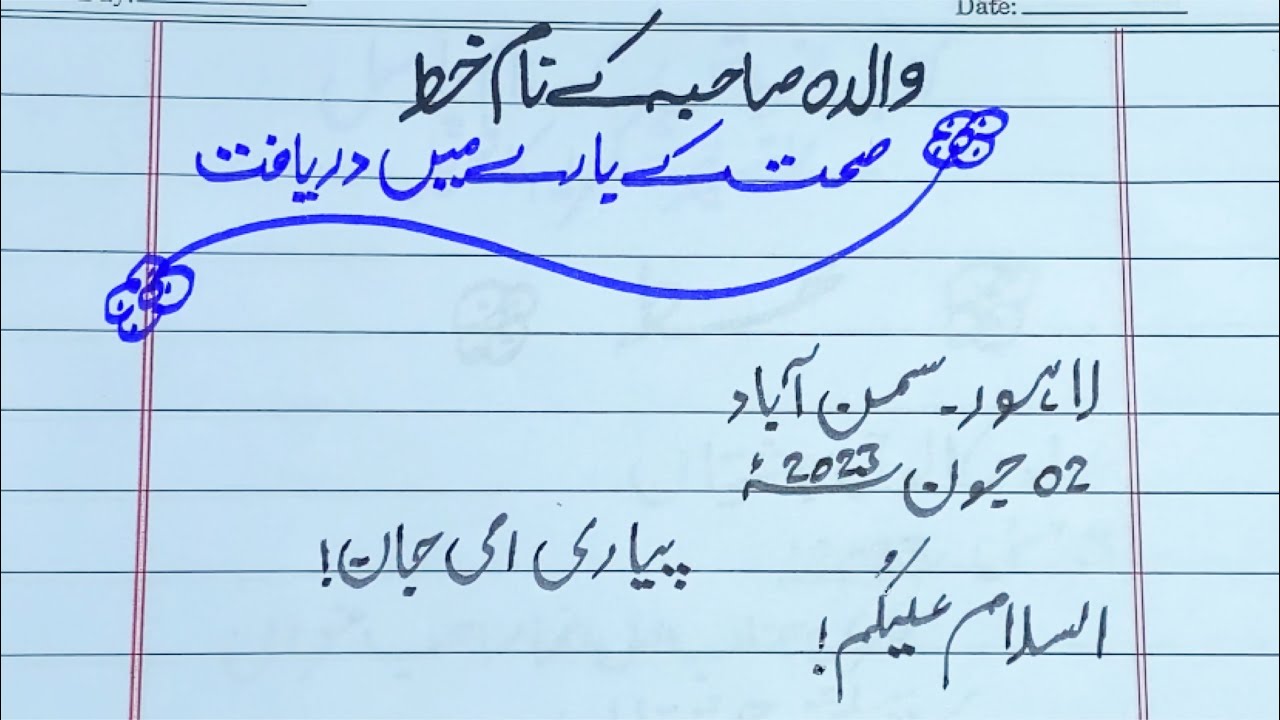 Date:
والدہ صاحبہ کے نام خط
صحت کے بارے میں دریافت
لاہور۔ سمن آباد
02 جون 2023ء
پیاری امی جان!
السلام علیکُم!